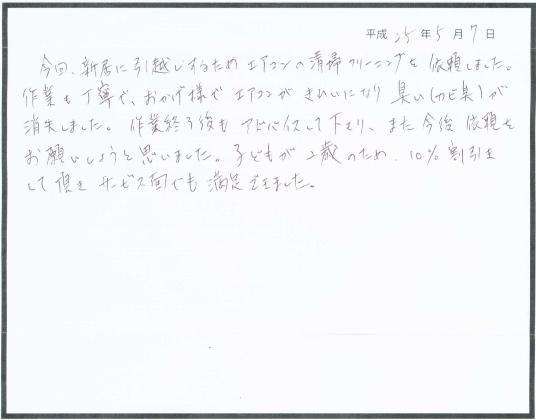 平成 25 年 5 月 7 日
今回、新居に引越しするためエアコンの清掃クリーニングを依頼しました。
作業も丁寧で、おかげ様でエアコンがきれいになり臭い(カビ臭)が
消失しました。作業終了後もアドバイスして下さり、また今後依頼を
お願いしようと思いました。子どもが2歳のため、10%割引を
して頂きサービス面でも満足できました。